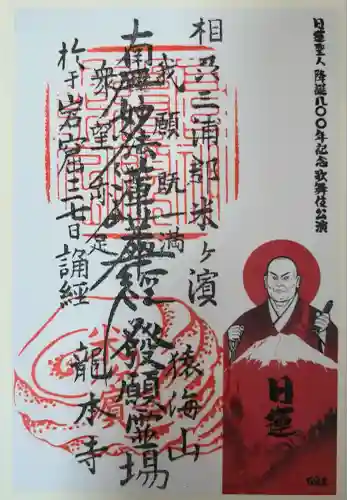 日蓮聖人 降誕八〇〇年記念歌舞伎公演
相州三浦郡米ヶ濱
我願既満
猿海山
南無妙法蓮華経 發願霊場
衆望亦足
龍本寺
於于岩窟三七日誦経
日蓮